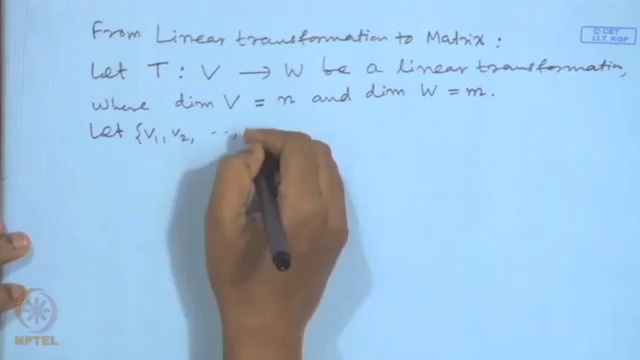 From Linear transformation to Matrix :
© CET
I.I.T. KGP
Let T : V → W be a linear transformation,
where dim V = n and dim W = m.
Let {v1, v2, ..,
NPTEL